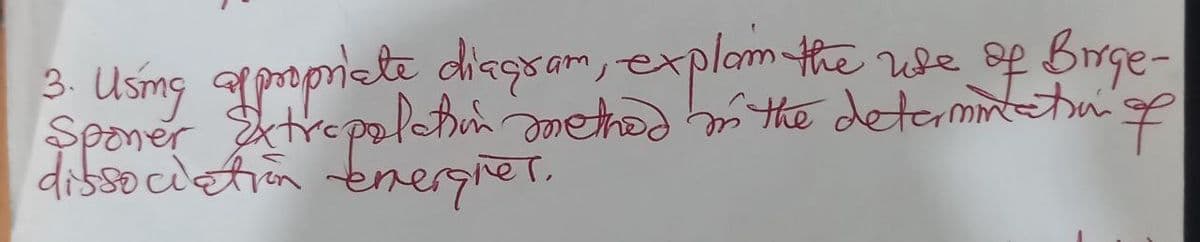 3. Using appropriate diagram, explain the use of Birge-
Sponer Extrapolation method in the determination of
dissociation energies.